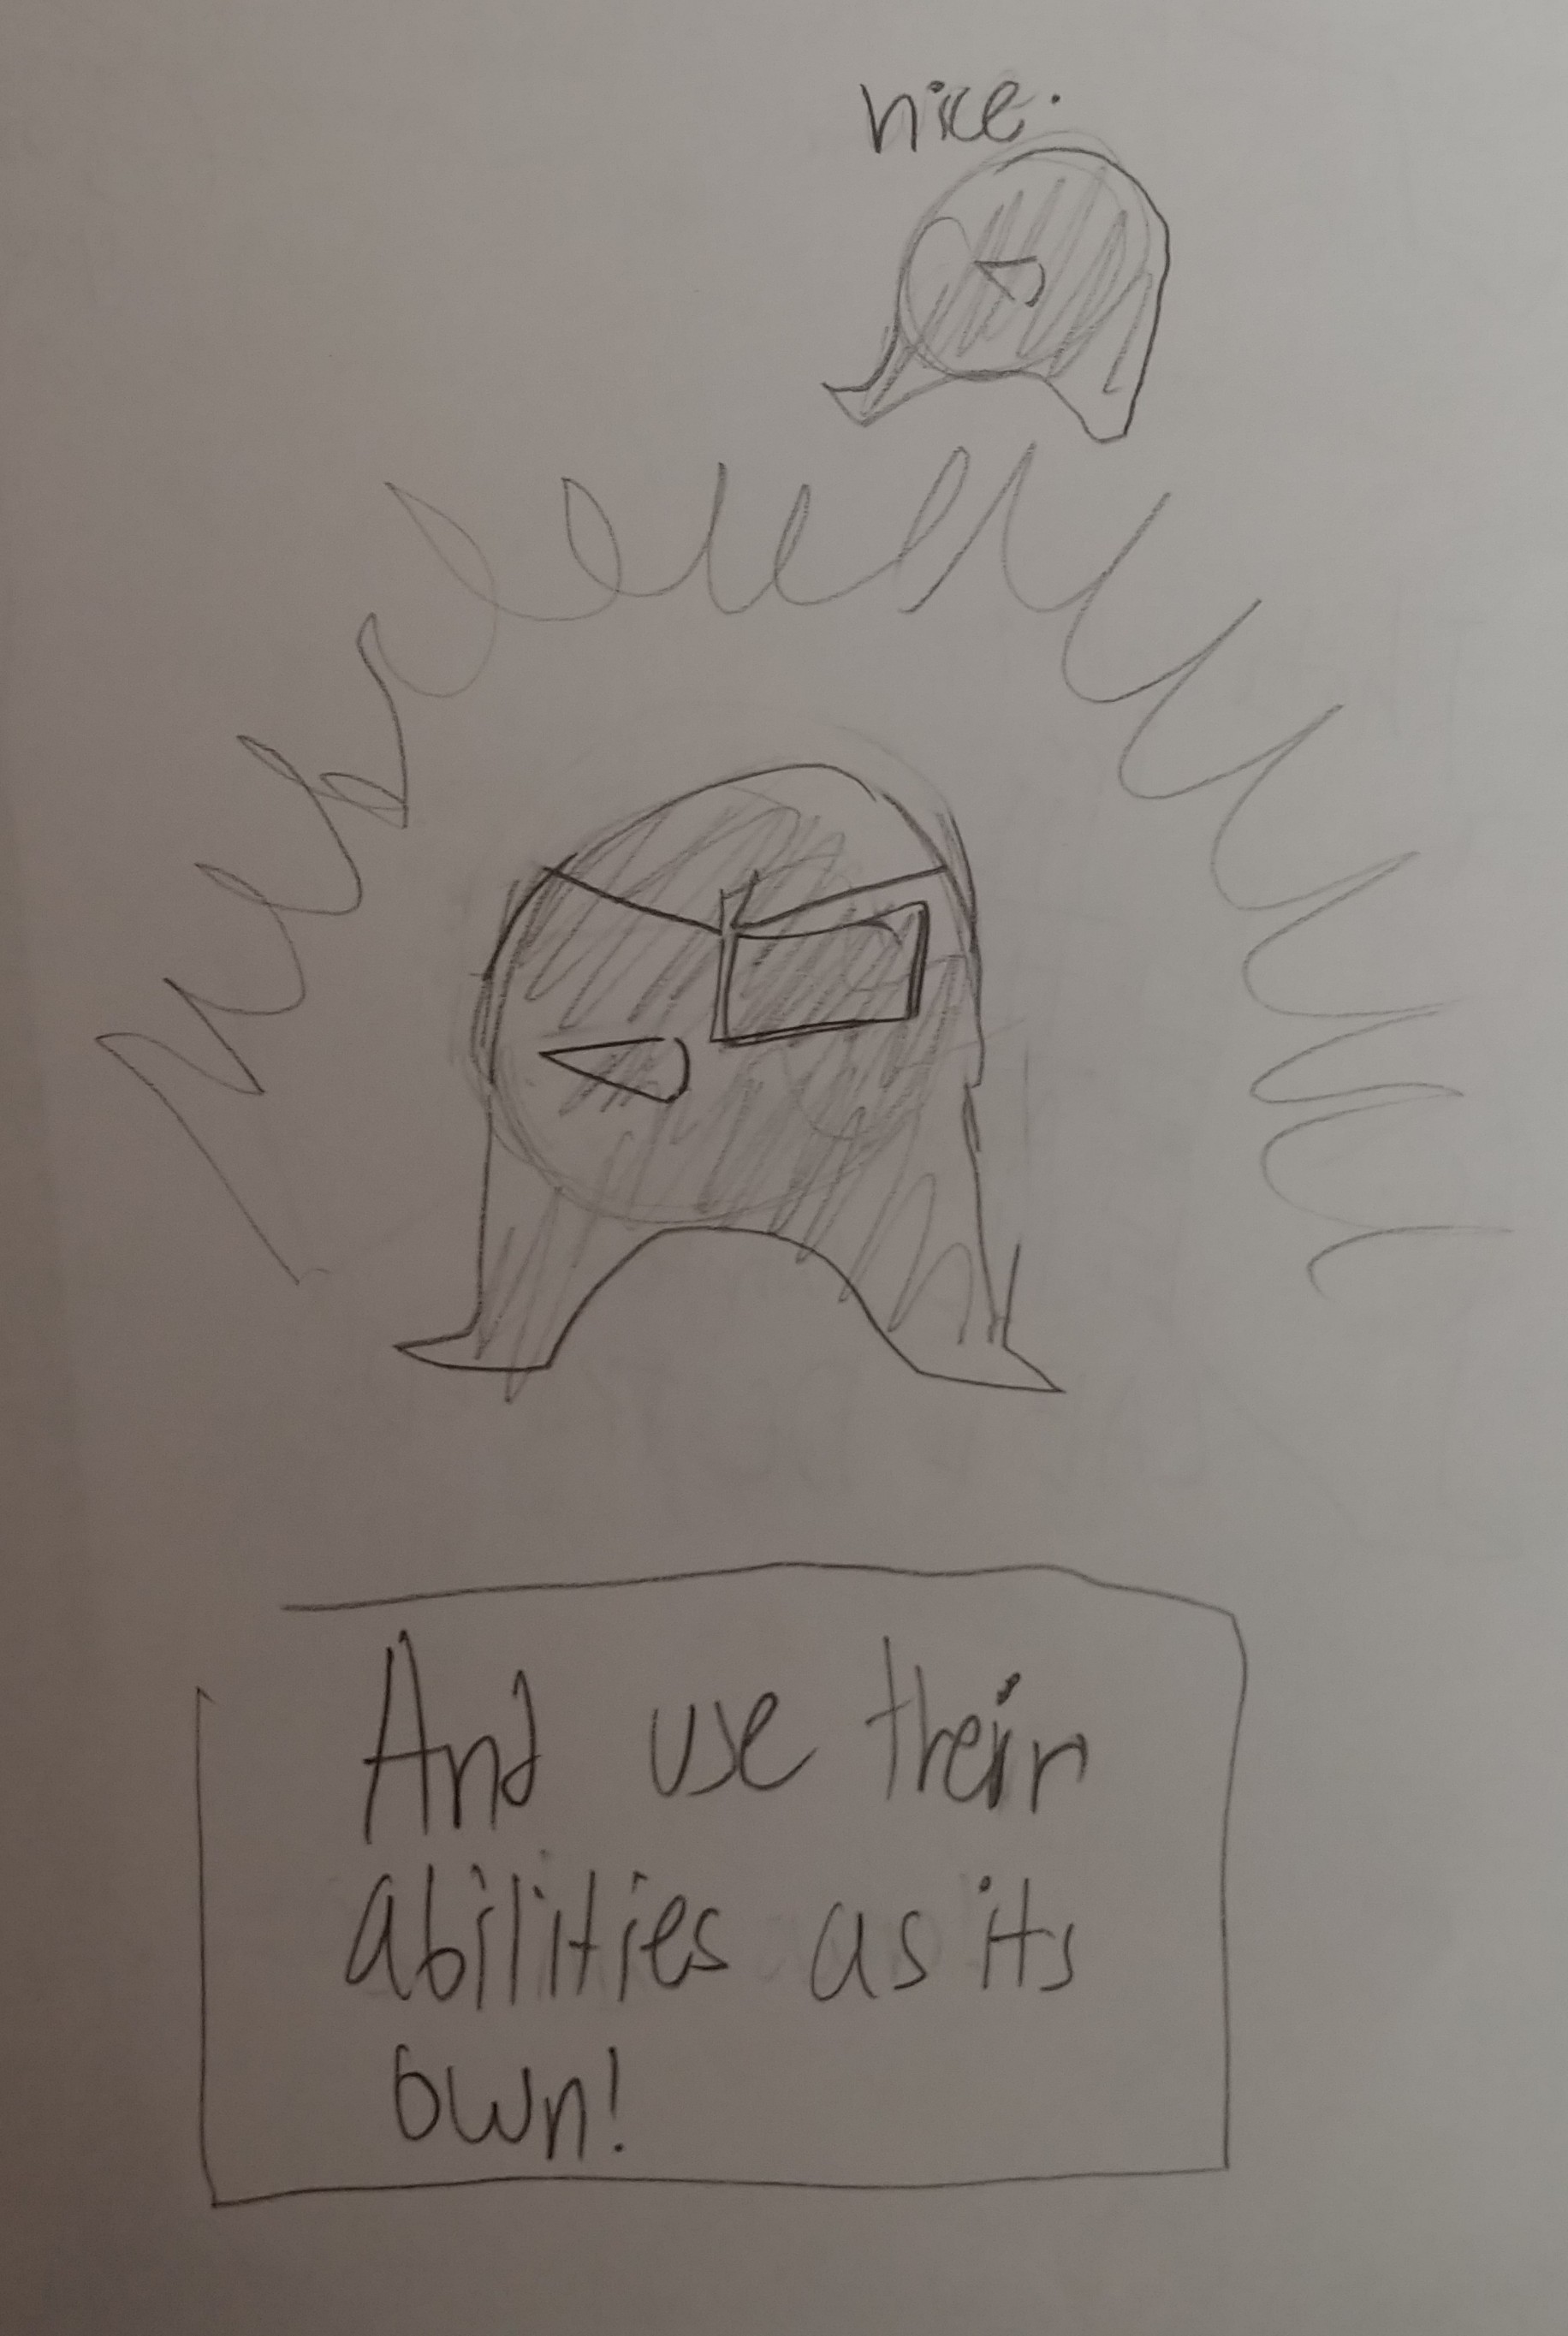 nice.
And use their
abilities as its
own!